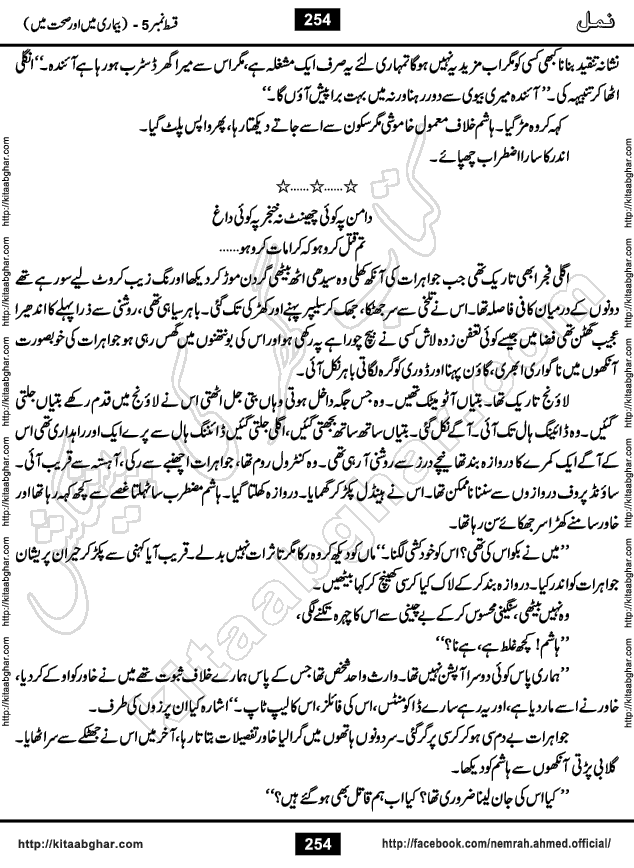 قسط نمبر 5 - (بیماری میں اور صحت میں)
254
نمل
نشانہ تنقید بنانا کبھی کسی کو مگر اب مزید یہ نہیں ہو گا تمہاری لئے یہ صرف ایک مشغلہ ہے، مگر اس سے میرا گھر ڈسٹرب ہو رہا ہے آئندہ۔‘‘ انگلی
اٹھا کر تنبیہہ کی۔ ’’آئندہ میری بیوی سے دور رہنا ورنہ میں بہت برا پیش آؤں گا۔‘‘
کہہ کر وہ مڑ گیا۔ ہاشم خلاف معمول خاموشی مگر سکون سے اسے جاتے دیکھتا رہا، پھر واپس پلٹ گیا۔
اندر کا سارا اضطراب چھپائے۔
☆......☆......☆
دامن پہ کوئی چھینٹ نہ خنجر پہ کوئی داغ
تم قتل کرو ہو کہ کرامات کرو ہو......
اگلی فجر ابھی تاریک تھی جب جواہرات کی آنکھ کھلی وہ سیدھی اٹھ بیٹھی گردن موڑ کر دیکھا اورنگ زیب کروٹ لیے سو رہے تھے
دونوں کے درمیان کافی فاصلہ تھا۔ اس نے تلخی سے سر جھٹکا، جھک کر سلیپر پہنے اور کھڑکی تک گئی۔ باہر سیاہی تھی، روشنی سے ذرا پہلے کا اندھیرا
عجیب گھٹن تھی فضا میں جیسے کوئی تعفن زدہ لاش کسی نے بیچ چوراہے پہ رکھی ہو اور اس کی بو نتھنوں میں گھس رہی ہو جواہرات کی خوبصورت
آنکھوں میں ناگواری ابھری، گاؤن پہنا اور ڈوری کو گرہ لگاتی باہر نکل آئی۔
لاؤنج تاریک تھا۔ بتیاں آٹومیٹک تھیں۔ وہ جس جگہ داخل ہوتی وہاں بتی جل اٹھتی اس نے لاؤنج میں قدم رکھے بتیاں جلتی
گئیں۔ وہ ڈائینگ ہال تک آئی۔ آگے نکل گئی۔ بتیاں ساتھ ساتھ بجھتی گئیں، اگلی جلتی گئیں ڈائننگ ہال سے پرے ایک اور راہداری تھی اس
کے آگے ایک کمرے کا دروازہ بند تھا نیچے درز سے روشنی آ رہی تھی۔ وہ کنٹرول روم تھا، جواہرات اچنبھے سے رکی، آہستہ سے قریب آئی۔
ساؤنڈ پروف دروازوں سے سننا ناممکن تھا۔ اس نے ہینڈل پکڑ کر گھمایا۔ دروازہ کھلتا گیا۔ ہاشم مضطرب سا ٹہلتا غصے سے کچھ کہہ رہا تھا اور
خاور سامنے کھڑا سر جھکائے سن رہا تھا۔
’’میں نے بکواس کی تھی؟ اس کو خودکشی لگنا۔‘‘ ماں کو دیکھ کر وہ رکا مگر تاثرات نہیں بدلے۔ قریب آیا کہنی سے پکڑ کر حیران پریشان
جواہرات کو اندر کیا۔ دروازہ بند کر کے لاک کیا کرسی کھینچ کر کہا بیٹھیں۔
وہ نہیں بیٹھی، سنگینی محسوس کر کے بے چینی سے اس کا چہرہ تکنے لگی،
’’ہاشم! کچھ غلط ہے، ہے نا؟‘‘
’’ہماری پاس کوئی دوسرا آپشن نہیں تھا۔ وارث واحد شخص تھا جس کے پاس ہمارے خلاف ثبوت تھے میں نے خاور کو اوکے کر دیا،
خاور نے اسے مار دیا ہے، اور یہ رہے سارے ڈاکومنٹس، اس کی فائلز، اس کا لیپ ٹاپ۔‘‘ اشارہ کیا ان پرزوں کی طرف۔
جواہرات بے دم سی ہو کر کرسی پر گر گئی۔ سر دونوں ہاتھوں میں گرا لیا خاور تفصیلات بتاتا رہا، آخر میں اس نے جھٹکے سے سر اٹھایا۔
گلابی پڑتی آنکھوں سے ہاشم کو دیکھا۔
’’کیا اس کی جان لینا ضروری تھا؟ کیا اب ہم قاتل بھی ہو گئے ہیں؟‘‘
http://kitaabghar.com
254
http://facebook.com/nemrah.ahmed.official/
http://kitaabghar.com
http://kitaabghar.com
http://kitaabghar.com
http://kitaabghar.com
http://kitaabghar.com
http://kitaabghar.com
http://kitaabghar.com
http://kitaabghar.com
http://kitaabghar.com
http://kitaabghar.com
http://kitaabghar.com
http://kitaabghar.com
کتاب گھر کی پیشکش
kitaabghar.com